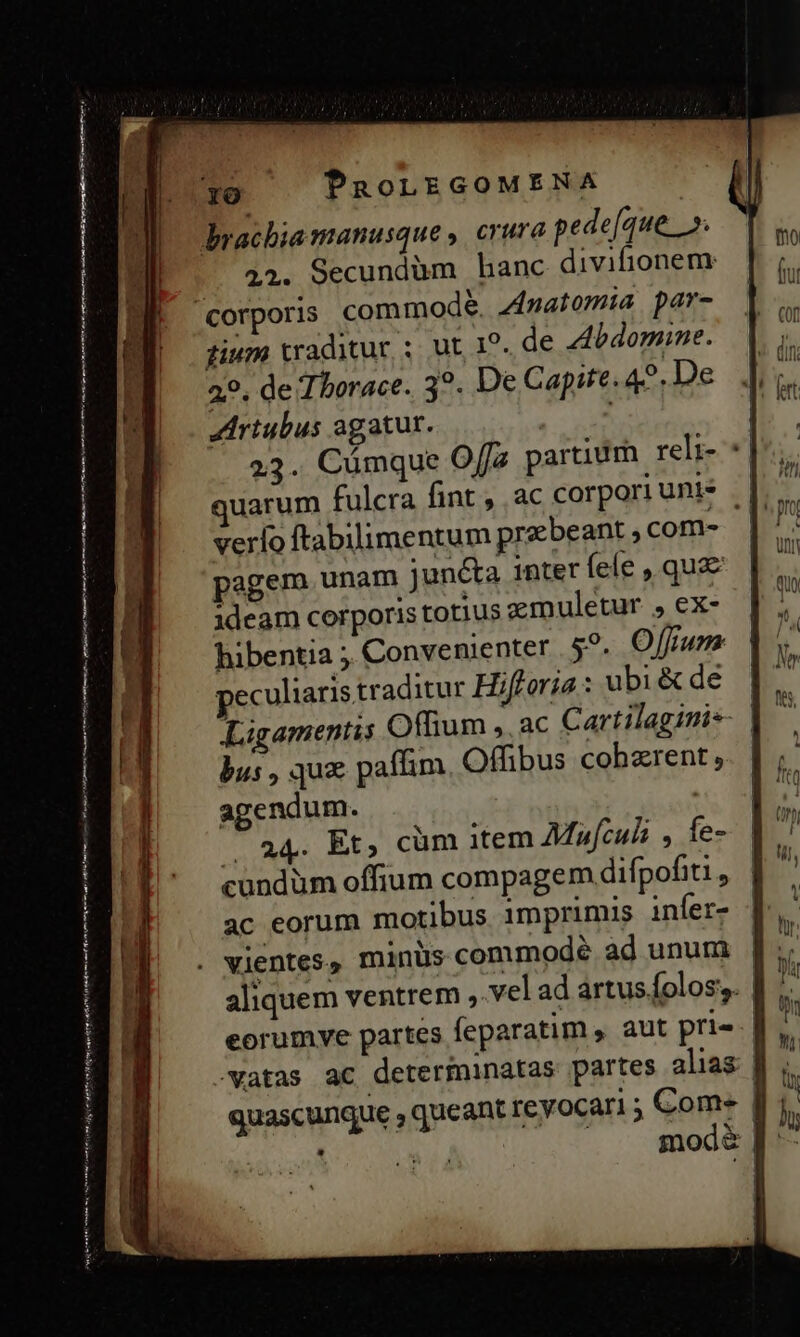 10 PROLEGOMENA
brachia manusque, crura pedeſque.
22. Secundùm hanc diviſionem
corporis commodè Anatomia par-
tium traditur: ut 1º. de Abdomine.
2º. de Thorace. 3º. De Capite. 4º. De
Artubus agatur.
23. Cúmque Oſſa partium reli-
quarum fulcra ſint, ac corpori uni-
verſo ſtabilimentum præbeant, com-
pagem unam juncta inter ſeſe, quæ
ideam corporis totius æmuletur, ex-
hibentia; Convenienter 5º. Oſſium
peculiaris traditur Hiſtoria: ubi & de
Ligamentis Oſſium, ac Cartilagini-
bus, quæ paſſim Oſſibus cohærent,
agendum.
24. Et, cùm item Muſculi, ſe-
cundùm oſſium compagem diſpoſiti,
ac eorum motibus imprimis inſer-
vientes, minùs commodè ad unum
aliquem ventrem, vel ad artus ſolos,
eorumve partes ſeparatim, aut pri-
vatas ac determinatas partes alias
quascunque, queant revocari; Com-
modè